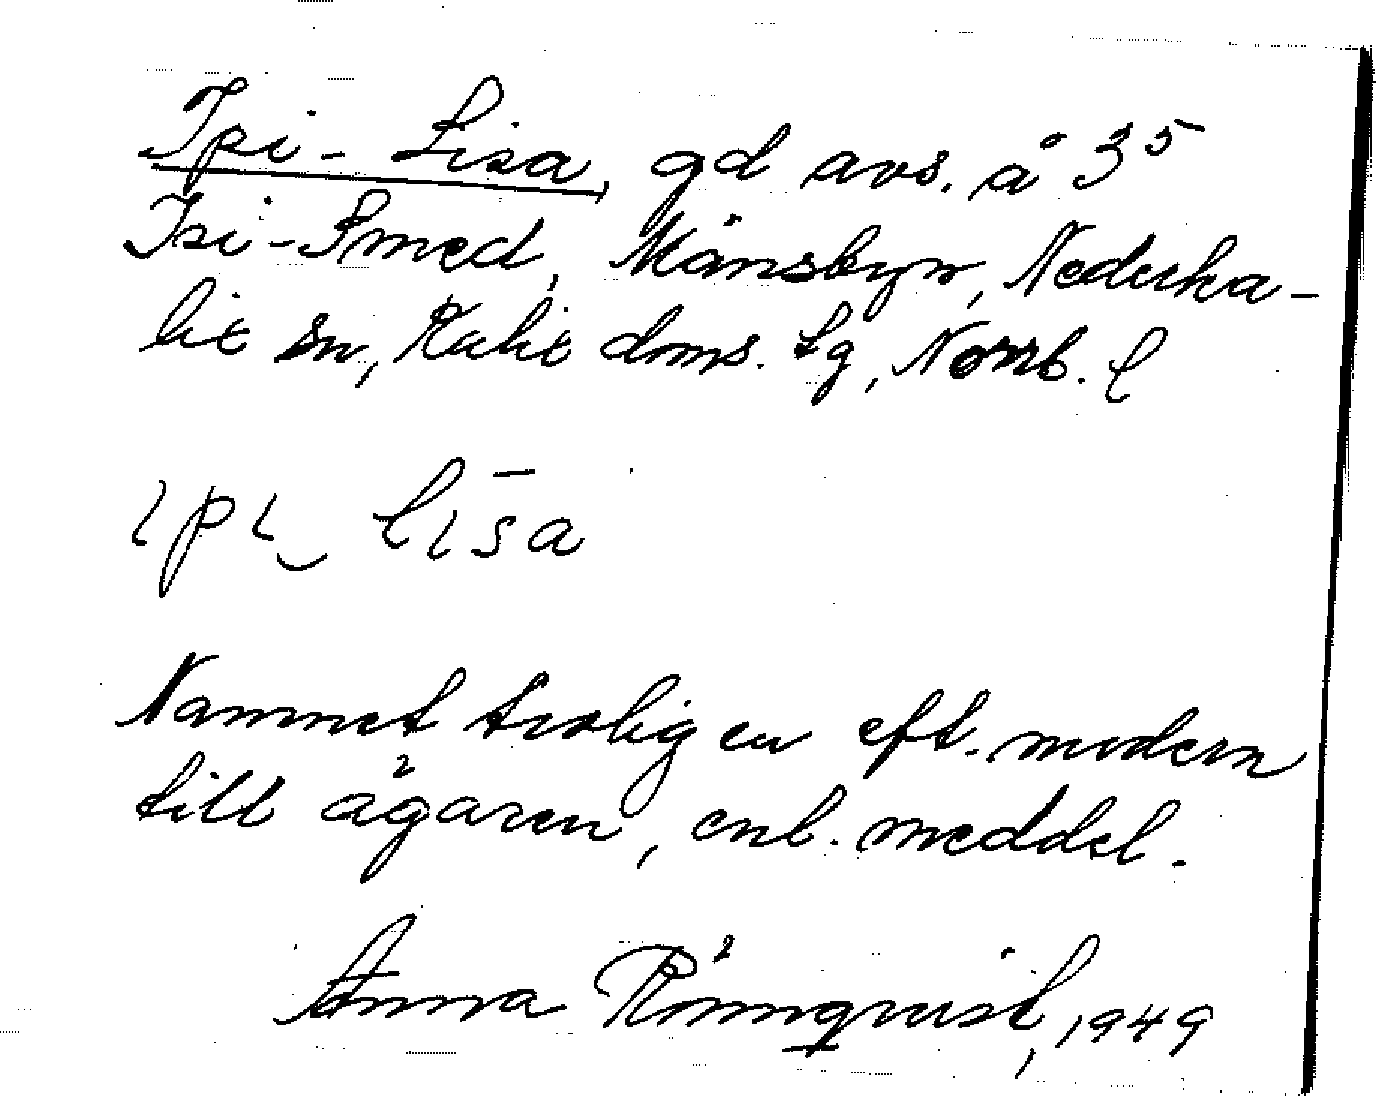 Ipi-Lisa, gd avs. å 3⁵
Isi-Smed, Månsbyn, Nederka-
lix sn, Kalix doms. tg, Norrb. l
ɩpɩ‿ lɩs̄a
Namnet troligen eft. modern
till ägaren, enl. meddel.
Anna Rönnqvist, 1949